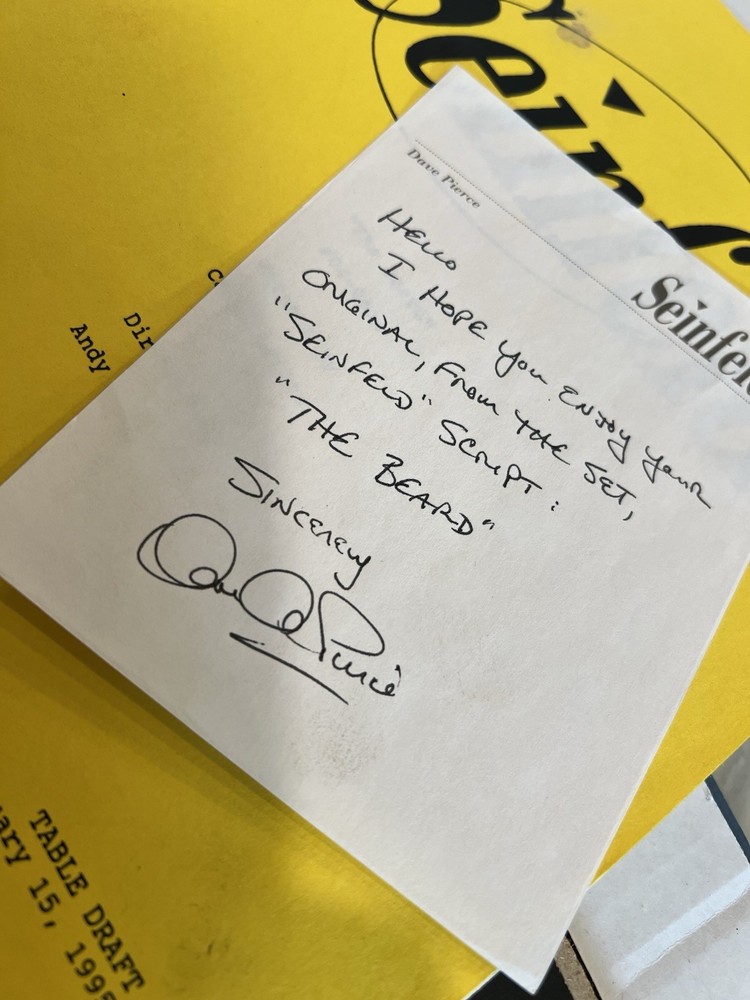 Seinf
Dave Pierce
Seinfel
Hello
I HOPE you ENJOY your
ORIGINAL, FROM THE SET,
"SEINFELD" SCRIPT:
"THE BEARD"
SINCERELY
Dave Pierce
C
Dir
Andy
TABLE DRAFT
ary 15, 199